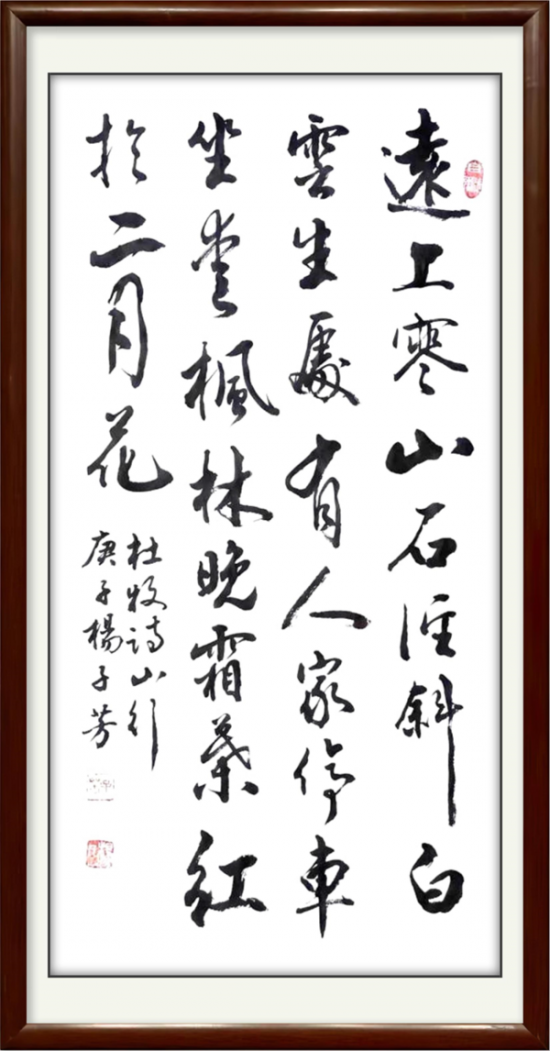 遠上寒山石徑斜白
雲生處有人家停車
坐愛楓林晚霜葉紅
於二月花
杜牧詩山行
庚子楊子芳